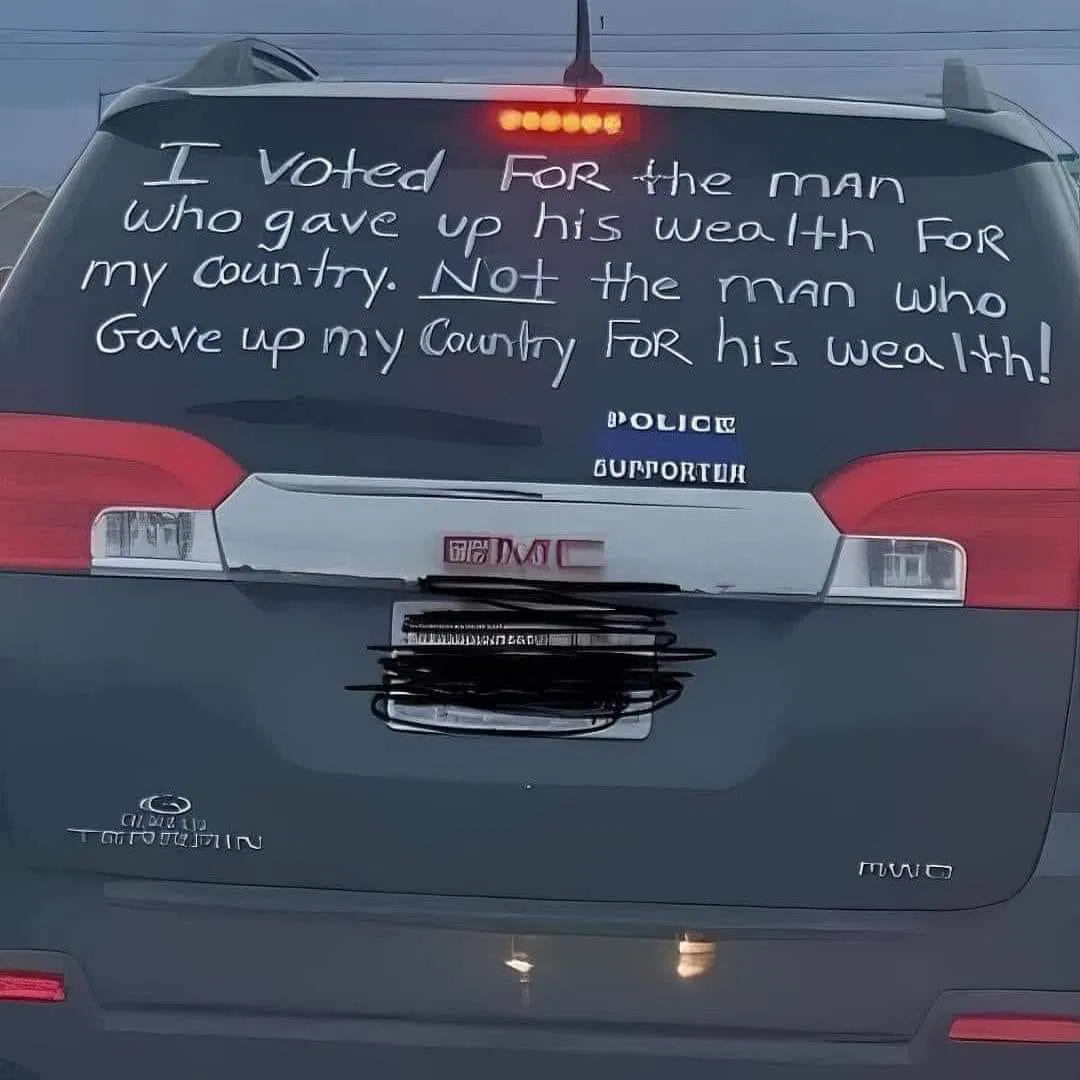 I voted FOR the mAn
who gave up his wealth FOR
my Country. Not the mAn who
Gave up my Country FOR his wealth!
POLICE
SUPPORTER